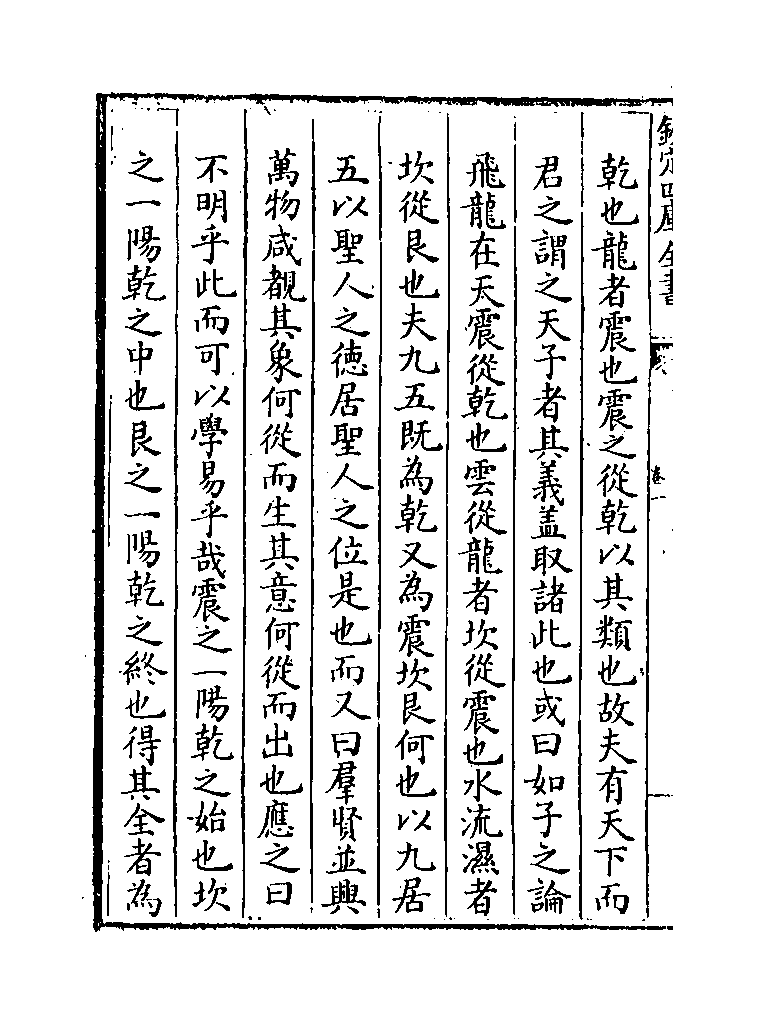 欽定四庫全書
卷一
乾也龍者震也震之從乾以其類也故夫有天下而
君之謂之天子者其義盖取諸此也或曰如子之論
飛龍在天震從乾也雲從龍者坎從震也水流濕者
坎從艮也夫九五既為乾又為震坎艮何也以九居
五以聖人之徳居聖人之位是也而又曰羣賢並興
萬物咸覩其象何從而生其意何從而出也應之曰
不明乎此而可以學易乎哉震之一陽乾之始也坎
之一陽乾之中也艮之一陽乾之終也得其全者為